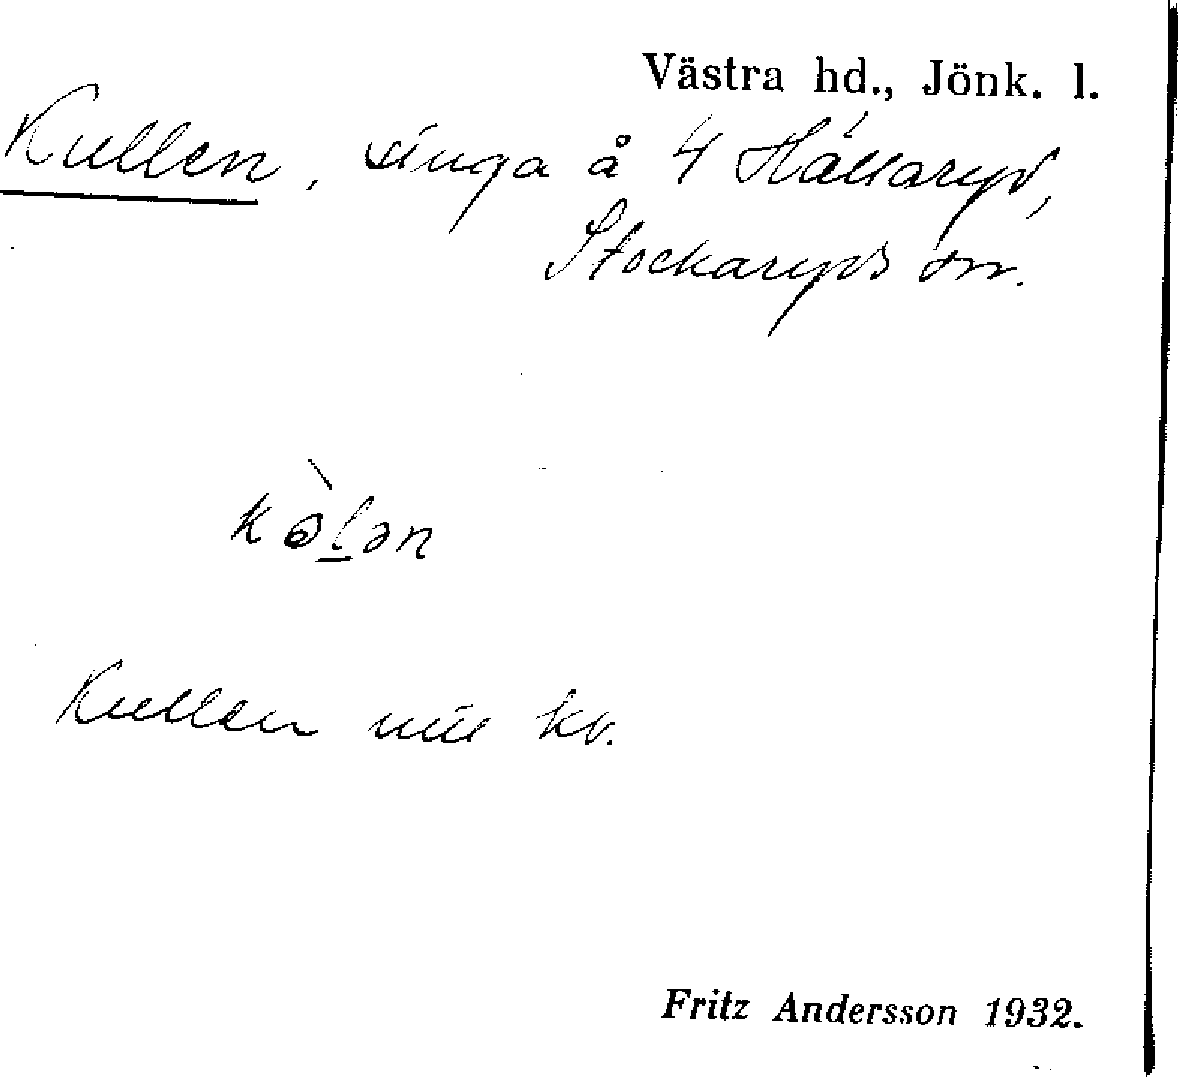 Västra hd., Jönk. l.
Kullen, stuga å 4 Hällaryd,
Stockaryds sn.
Kullen kv.
Fritz Andersson 1932.